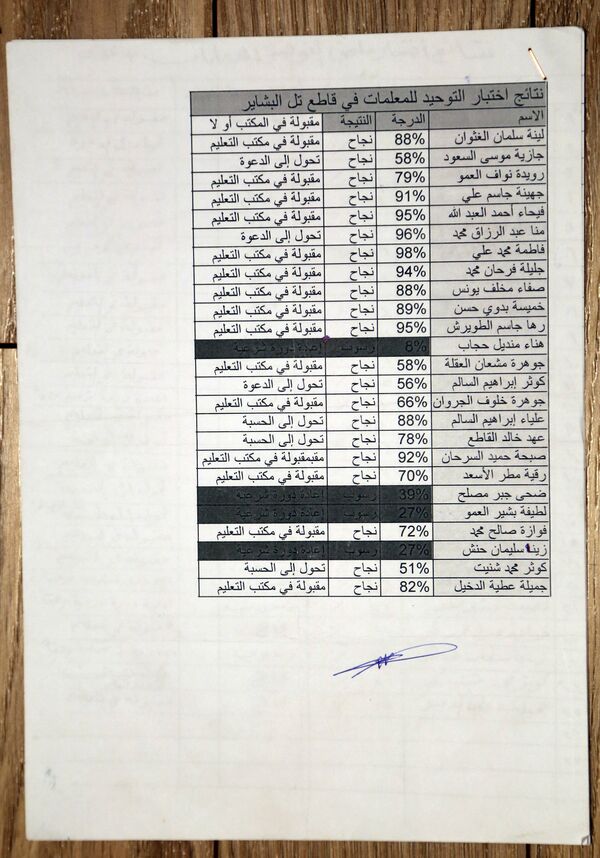 نتائج اختبار التوحيد للمعلمات في قاطع تل البشاير
الاسم الدرجة النتيجة مقبولة في المكتب أو لا
لينة سلمان الغثوان 88% نجاح مقبولة في مكتب التعليم
جازية موسى السعود 58% نجاح تحول إلى الدعوة
رويدة نواف العمو 79% نجاح مقبولة في مكتب التعليم
جهينة جاسم علي 91% نجاح مقبولة في مكتب التعليم
فيحاء أحمد العبد الله 95% نجاح مقبولة في مكتب التعليم
منا عبد الرزاق محمد 96% نجاح تحول إلى الدعوة
فاطمة محمد علي 98% نجاح مقبولة في مكتب التعليم
جليلة فرحان محمد 94% نجاح مقبولة في مكتب التعليم
صفاء مخلف يونس 88% نجاح مقبولة في مكتب التعليم
خميسة بدوي حسن 89% نجاح مقبولة في مكتب التعليم
رها جاسم الطويرش 95% نجاح مقبولة في مكتب التعليم
هناء منديل حجاب 8% رسوب إعادة دورة شرعية
جوهرة مشعان العقلة 58% نجاح مقبولة في مكتب التعليم
كوثر إبراهيم السالم 56% نجاح تحول إلى الدعوة
جوهرة خلوف الجروان 66% نجاح مقبولة في مكتب التعليم
علياء إبراهيم السالم 88% نجاح تحول إلى الحسبة
عهد خالد القاطع 78% نجاح تحول إلى الحسبة
صبحة حميد السرحان 92% نجاح مقبمقبولة في مكتب التعليم
رقية مطر الأسعد 70% نجاح مقبولة في مكتب التعليم
ضحى جبر مصلح 39% رسوب إعادة دورة شرعية
لطيفة بشير العمو 27% رسوب إعادة دورة شرعية
فوازة صالح محمد 72% نجاح مقبولة في مكتب التعليم
زينة سليمان حنش 27% رسوب إعادة دورة شرعية
كوثر محمد شنيت 51% نجاح تحول إلى الحسبة
جميلة عطية الدخيل 82% نجاح مقبولة في مكتب التعليم